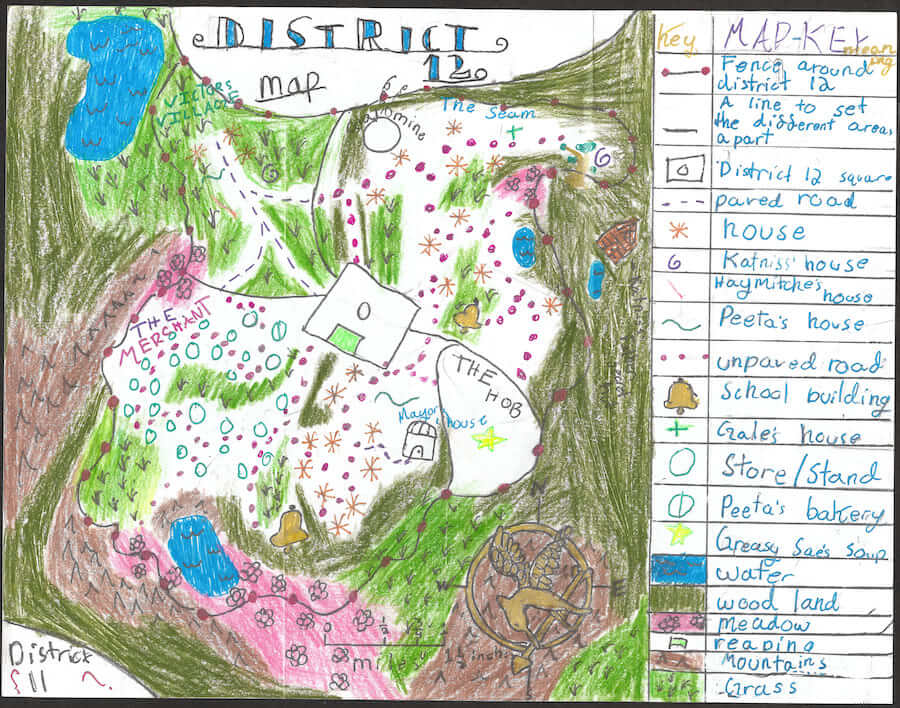 DISTRICT
12
map
VICTORS
VILLAGE
The Seam
mine
THE
MERSHANT
THE
HOB
Mayor's house
N
W
E
miles
1 1/2 inch
District
11
Key
MAP-KEY
meaning
Fence around
district 12
A line to set
the different areas
apart
District 12 square
paved road
house
Katniss' house
Haymitche's
house
Peeta's house
unpaved road
School building
Gale's house
Store/Stand
Peeta's bakery
Greasy Sae's soup
water
wood land
meadow
reaping
Mountains
Grass